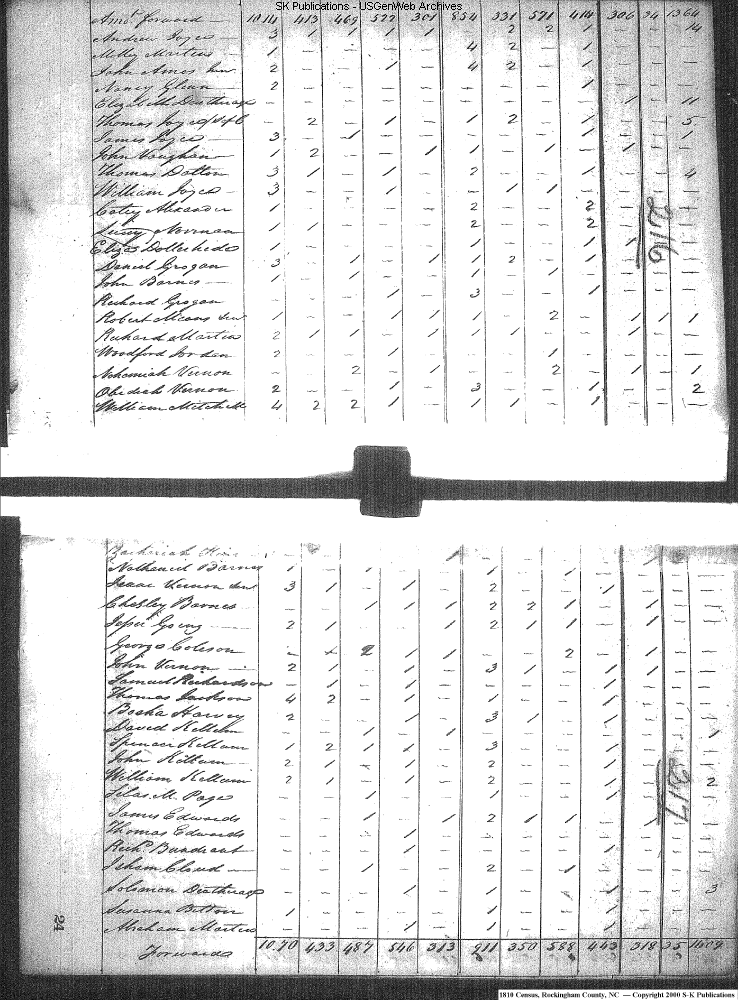 SK Publications - USGenWeb Archives
Amt forward 1014 413 469 522 301 854 331 571 414 306 34 1364
Andrew Joyce 3 1 1 1 1 - 2 2 1 - - 14
Molly Martin 1 - - - - 4 2 - 1 - - -
John Amos 2 - - 1 - 4 2 - 1 - - -
Nancy Glenn 2 - - - - - - - 1 - - -
Elizabeth Deatherage - - - - - - - - - 1 - 11
Thomas Joyce - 2 - 1 - 1 2 - 1 - - 5
James Joyce 3 - 1 - - - - - 1 - - 1
John Vaughan 1 2 - - 1 1 - 1 1 - - -
Thomas Dalton 3 1 - 1 - 2 - - 1 - - 4
William Joyce 3 - - 1 - - 1 1 - - - -
Caty Alexander 1 - - - - 2 - - 2 - - -
Norman 1 1 - - - 2 - - 2 - - -
216
Eliza - - - - - 1 - - 1 1 - -
Daniel Grogan 3 - 1 - 1 1 2 - 1 - - -
John Barnes 1 - 1 - - 1 - 1 - - - -
Richard Grogan - - - 1 - 3 - - 1 - - -
Robert Means 1 - - 1 1 1 - 2 - 1 1 1
Richard Martin 2 1 1 - 1 1 1 - - - - -
Woodford Jordan 2 - - 1 - - - 1 - - - -
Nehemiah Vernon - - 2 - 1 - - 2 - 1 - 1
Obediah Vernon 2 - - 1 - 3 - - 1 - - 2
William Mitchell 4 2 2 1 - 1 1 - 1 - - -
Nathaniel Barnes 1 - 1 - 1 - - 1 - 1 - -
Isaac Vernon 3 1 - 1 - 2 - - 1 - - -
Chesley Barnes - - 1 1 1 2 2 1 - 1 - -
Going 2 1 - - 1 2 1 1 - 1 - -
George Coleson - - 2 1 1 - - 2 - 1 - -
John Vernon 2 1 - 1 - 3 1 - 1 1 - -
Samuel Richardson - 1 - 1 - - - - 1 - - -
Thomas Jackson 4 2 - 1 - 1 - - 1 - - -
Harvey 2 - - 1 - 3 1 - 1 - - -
David Kellam - - 1 - 1 - - - - - - 1
Spencer Kellam 1 2 1 1 - 3 - - 1 - - -
John Kellam 2 1 - 1 - 2 - - 1 - - -
William Kellam 2 1 - 1 - 2 - - 1 - - 2
217
Silas M. Page - - 1 - - 1 - - 1 - - -
James Edwards - - 1 - 1 2 1 1 - 1 - -
Thomas Edwards - - - 1 - - - - 1 - - -
Richd - - - 1 - 1 - - 1 - - -
Isham Cloud - - 1 - - 2 - 1 - - - -
Solomon Deatherage - - - 1 - 1 - - 1 - - 3
Susanna 1 - - - - 1 - - 1 - - -
Abraham Martin - - - 1 - 1 - - 1 - - -
24
Forwards 1070 433 487 546 313 911 350 588 443 318 35 1409
1810 Census, Rockingham County, NC — Copyright 2000 S-K Publications